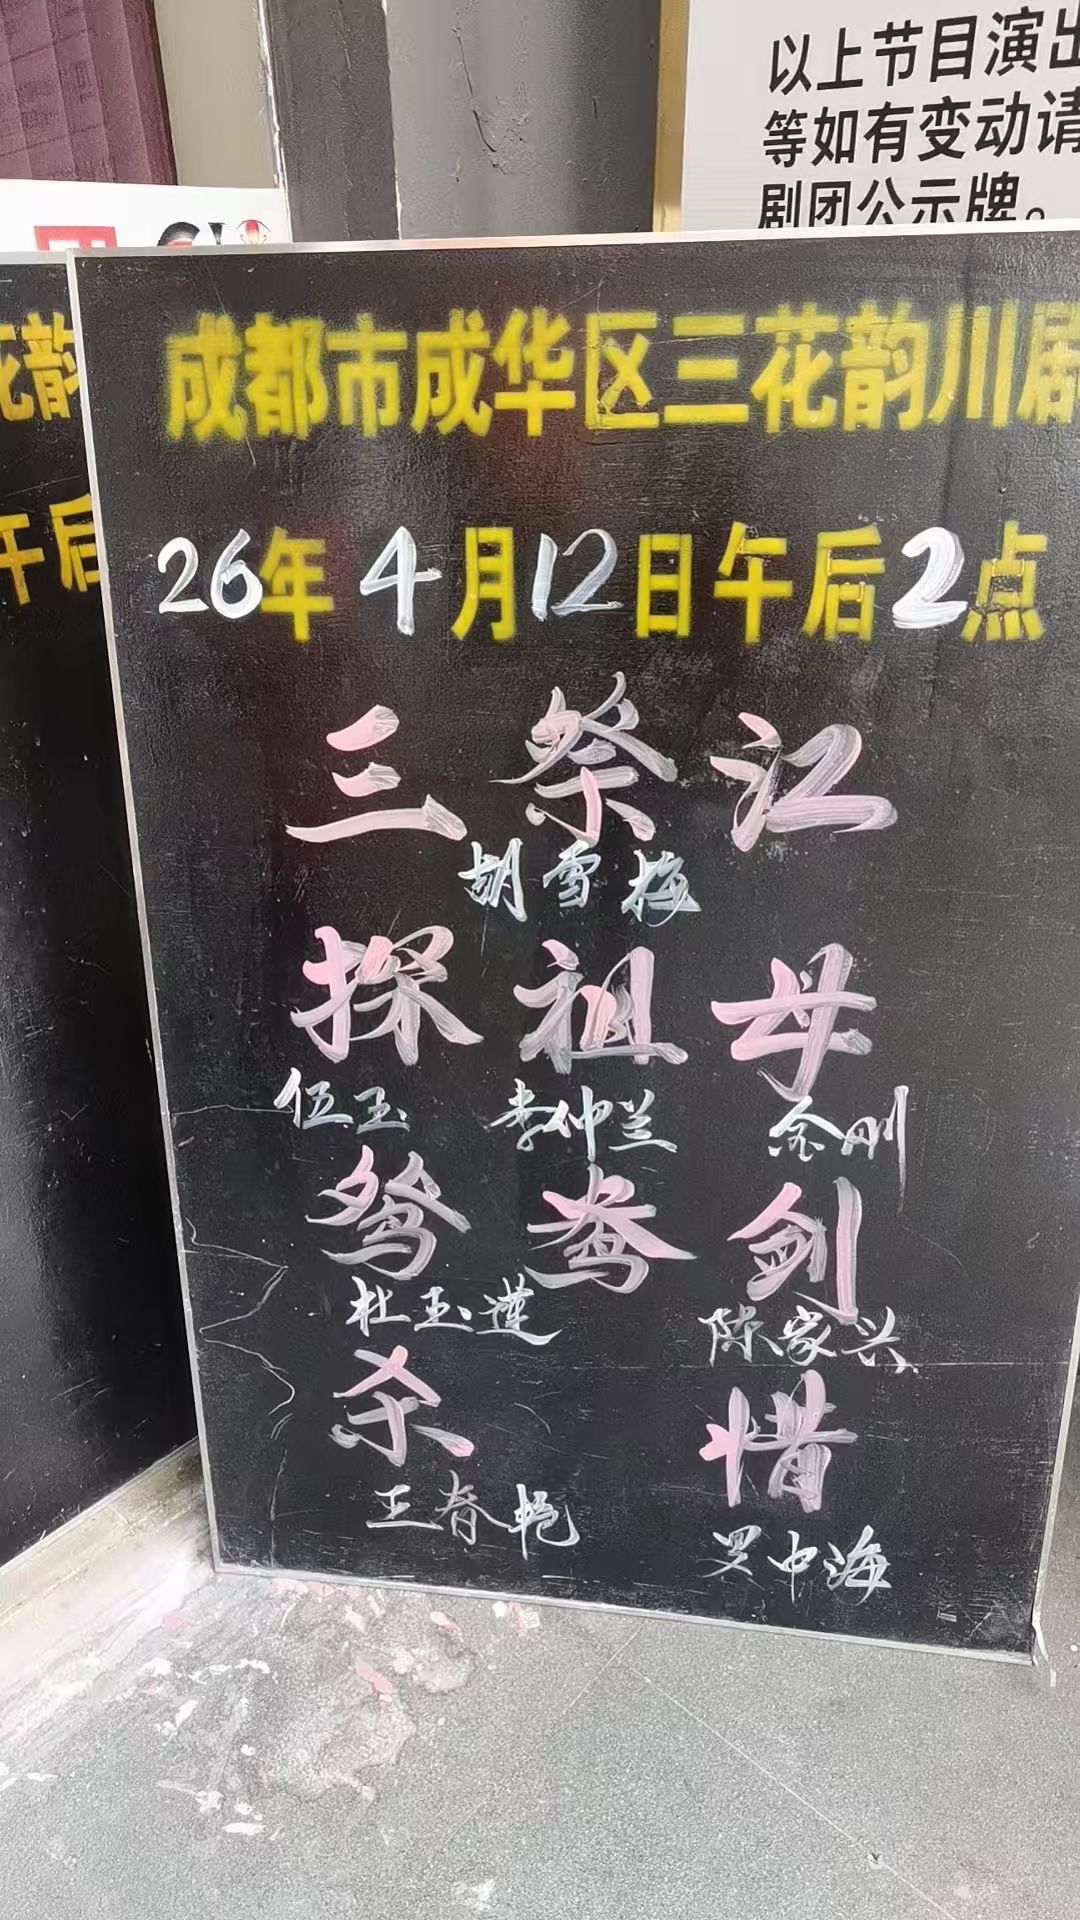 以上节目演出
等如有变动请
剧团公示牌。
花韵
午后
成都市成华区三花韵川剧
26年4月12日午后2点
三祭江
胡雪梅
探祖母
伍玉 李仲兰 金刚
鸳鸯剑
杜玉莲 陈家兴
杀惜
王春艳 罗中海